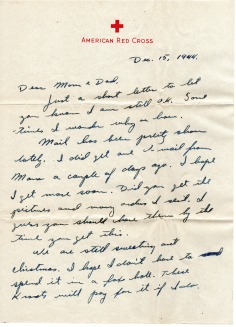 AMERICAN RED CROSS
Dec. 15, 1944.
Dear Mom & Dad,
Just a short letter to let
you know I am still O.K. Some
times I wonder why or how.
Mail has been pretty slow
lately. I did get one V mail from
Mona a couple of days ago. I hope
I get more soon. Did you get the
pictures and money orders I sent. I
guess you should have them by the
time you get this.
We are still sweating out
christmas. I hope I don't have to
spend it in a fox hole. These
Krauts will pay for it if I do.